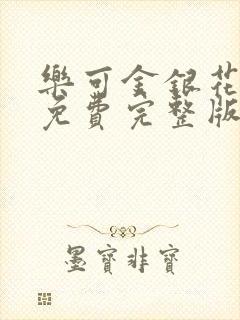 樂可金銀花
免費完整版
墨寶非寶